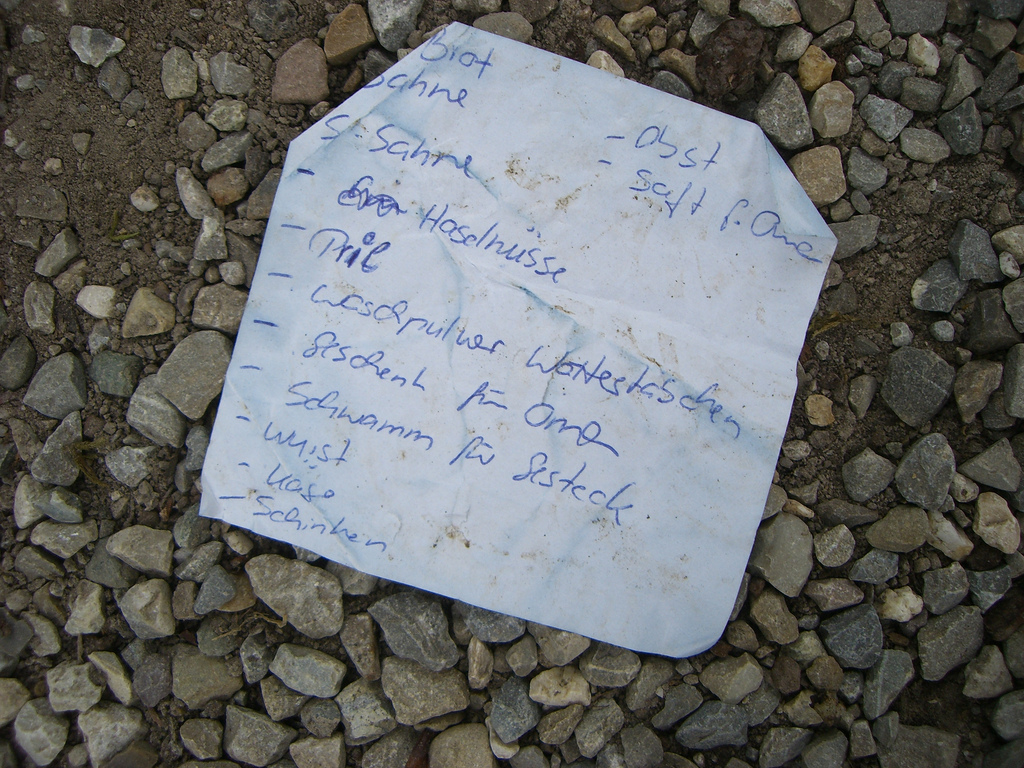 Brot
Sahne
S-Sahne
- Haselnüsse
- Pril
- Waschpulver Wattestäbchen
- Geschenk für Oma
- Schwamm für Gesteck
- Wurst
- Käse
- Schinken
- Obst
- Saft f. Oma